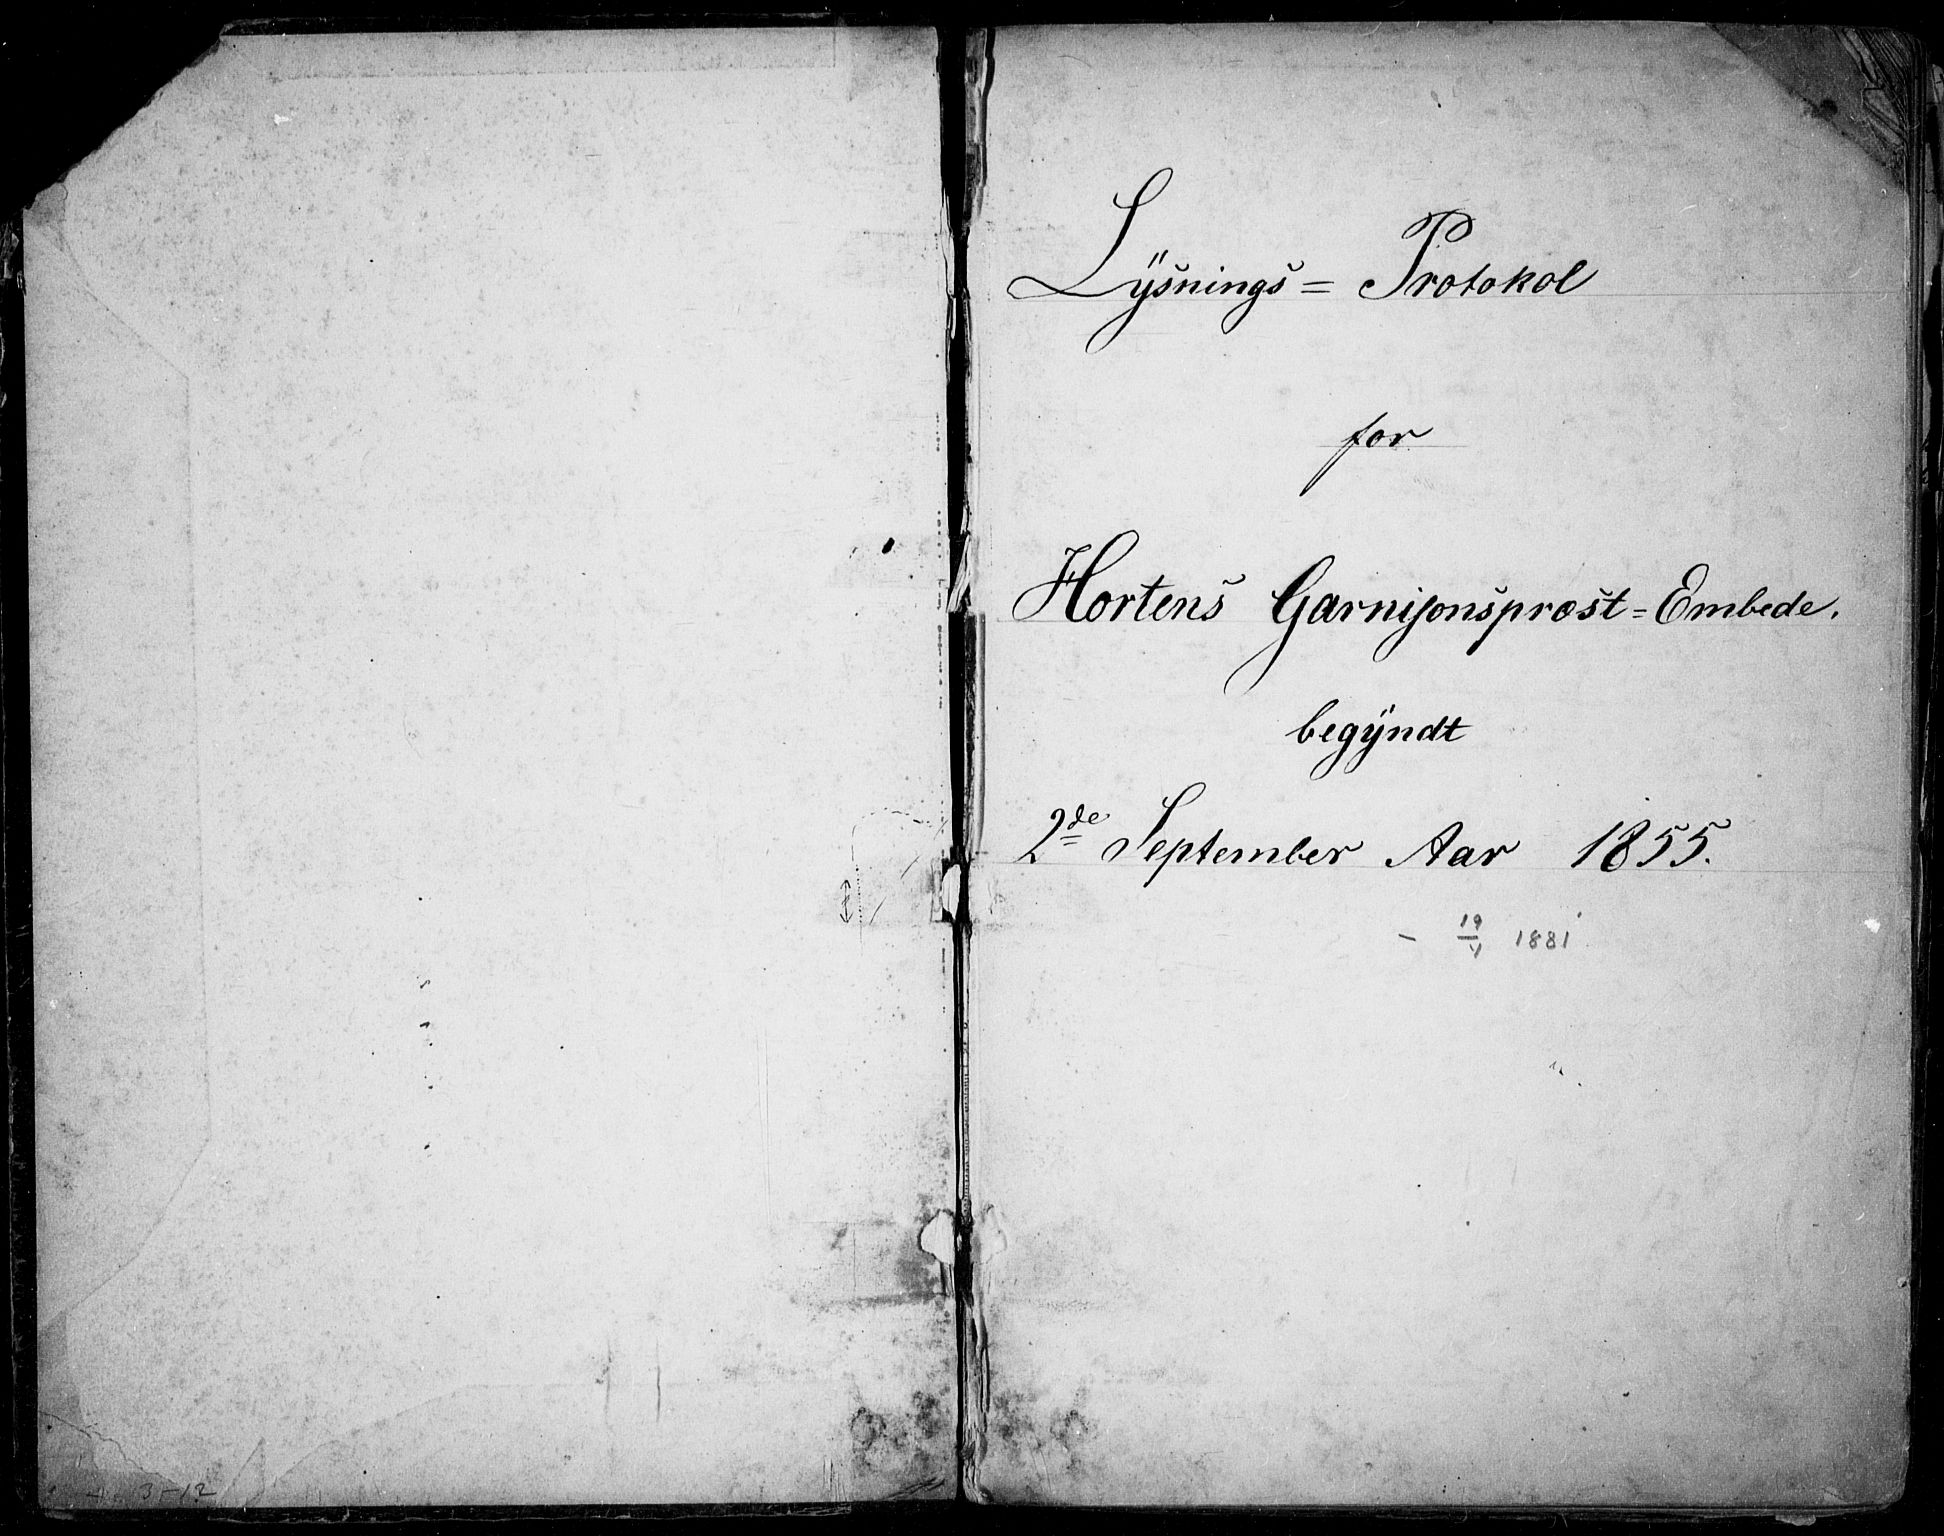 Lÿsnings = Protokol
for
Hortens Garnisonspræst = Embede.
begÿndt
2de September Aar 1855.
- 19/V 1881
3-12